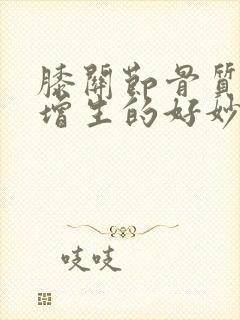 膝關節骨質
增生的好妙
吱吱